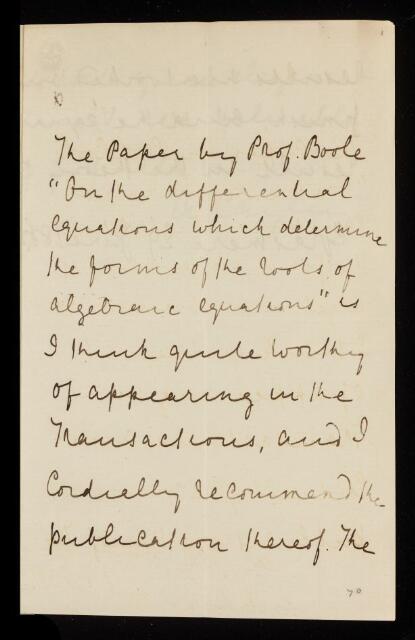 The Paper by Prof. Boole
"On the differential
equations which determine
the forms of the roots of
algebraic equations" is
I think quite worthy
of appearing in the
Transactions, and I
Cordially recommend the
publication thereof. The
70